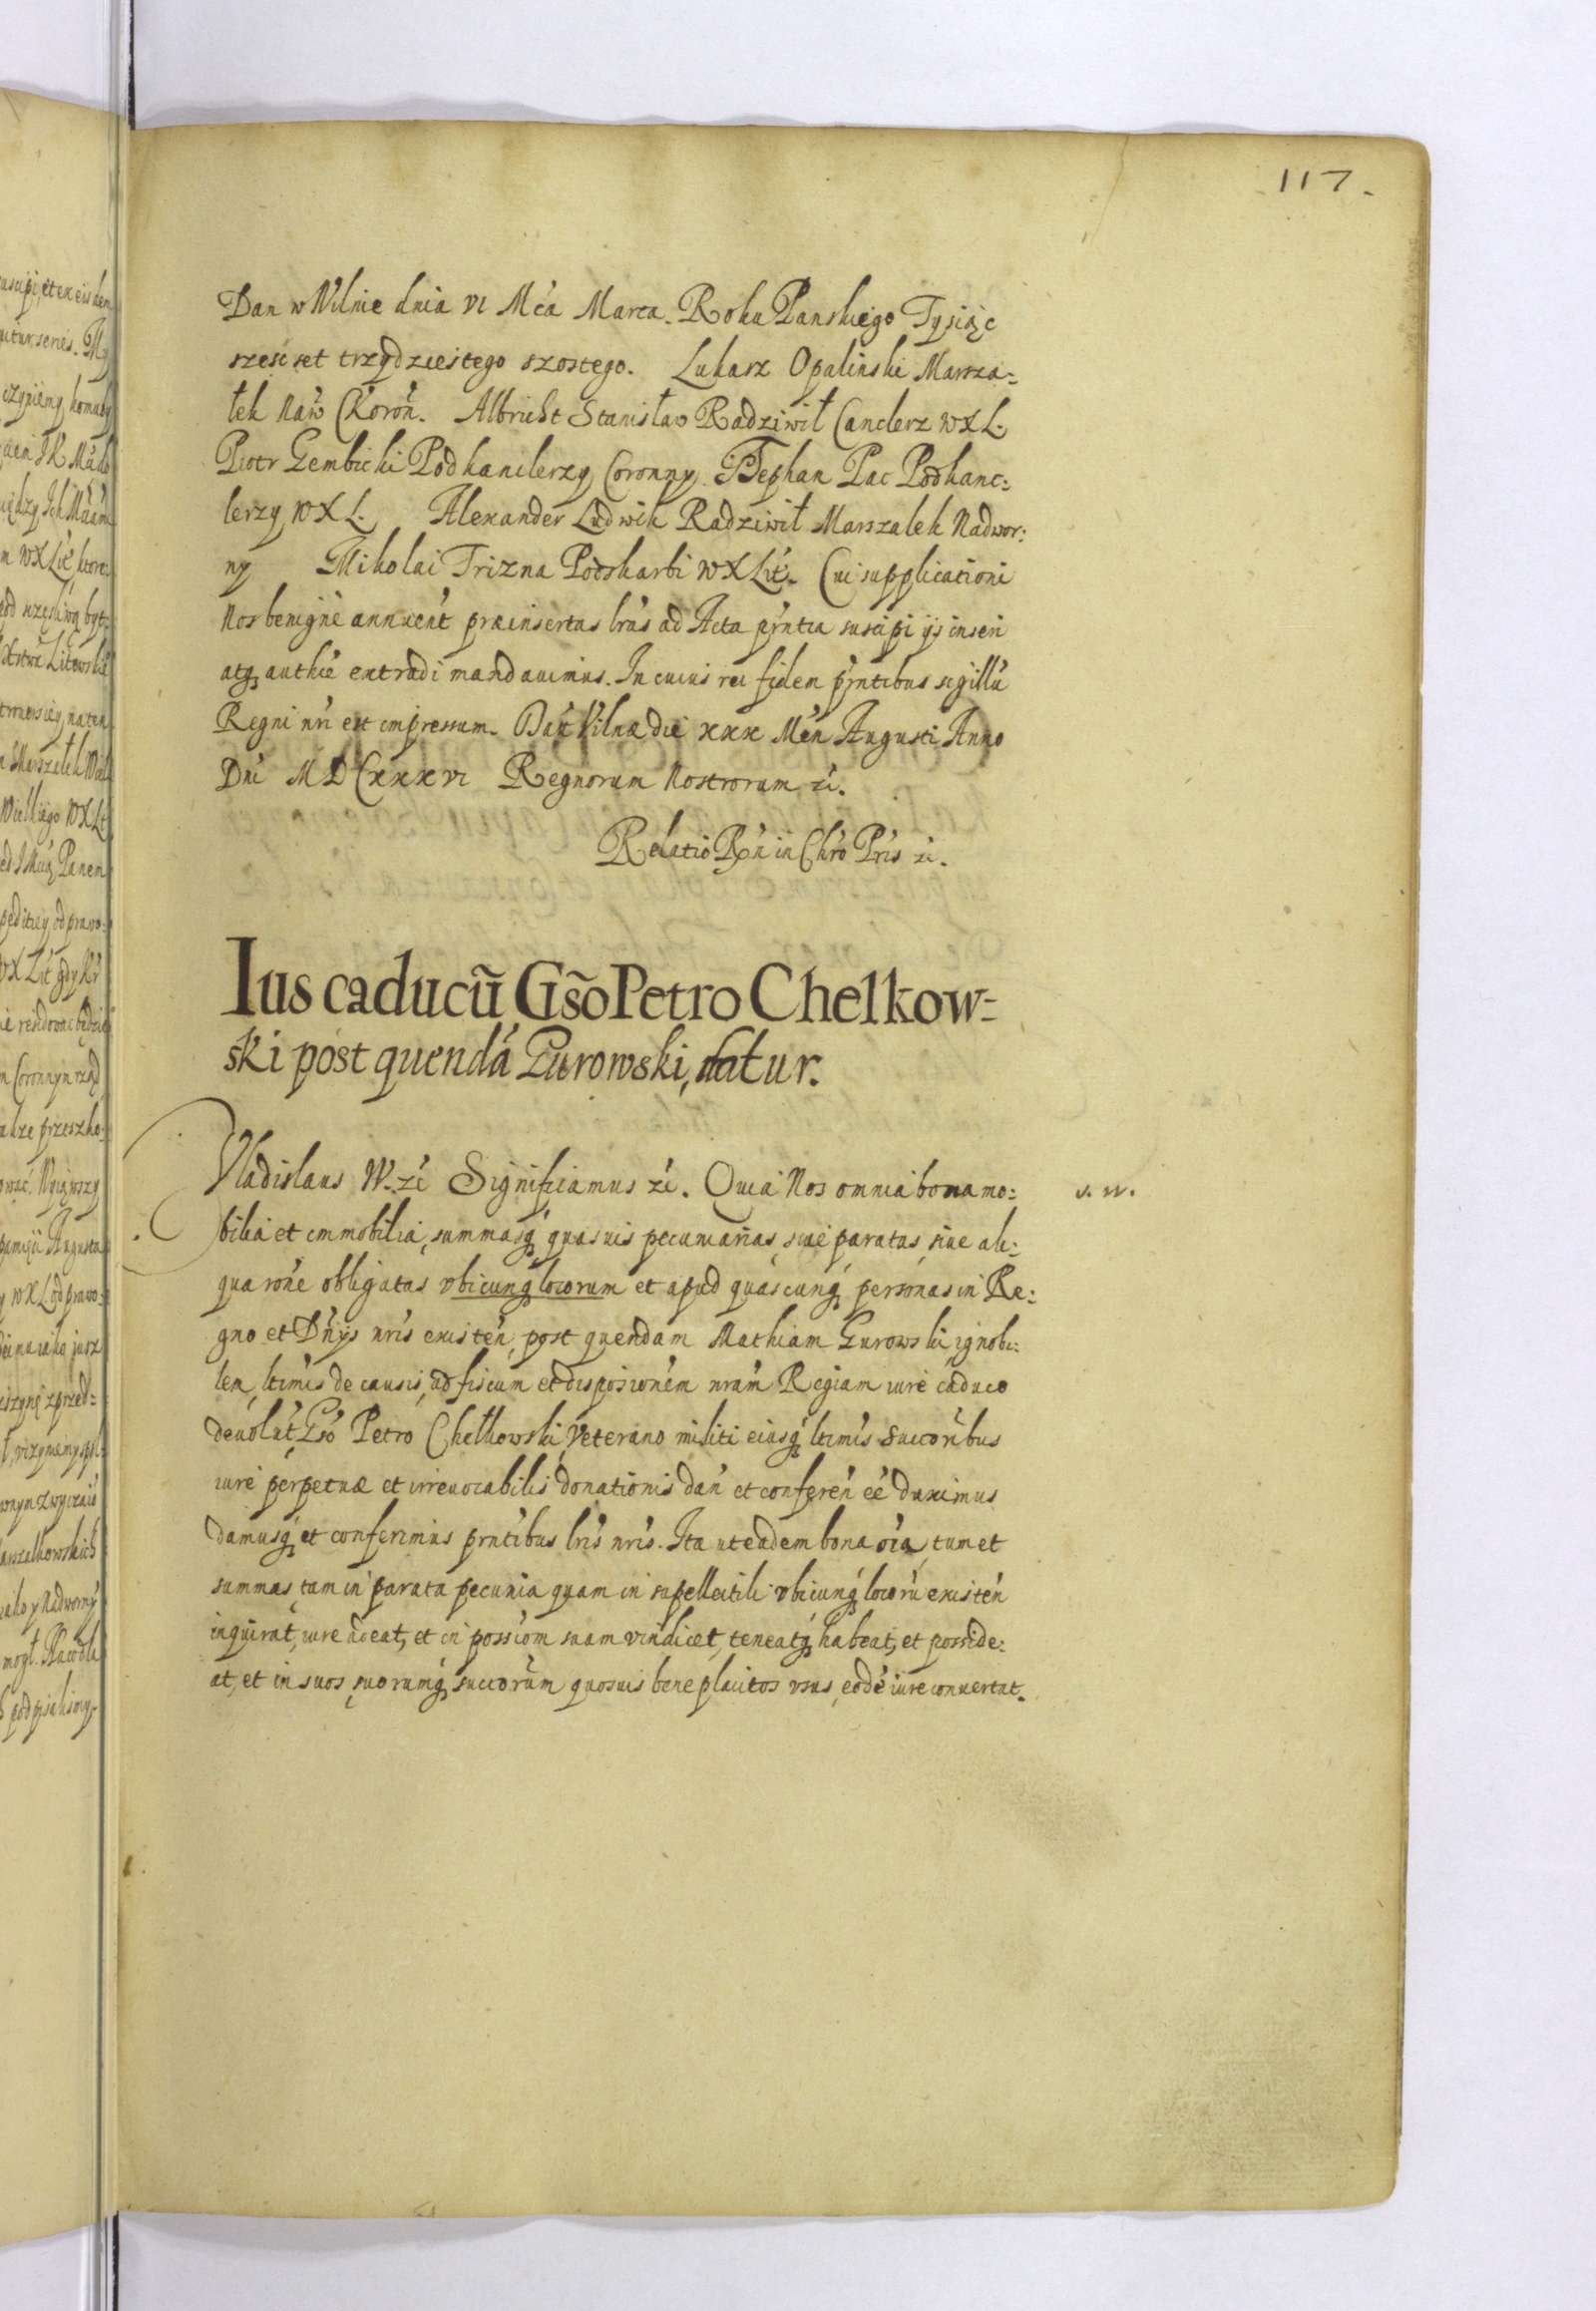 117.
Dan w Wilnie dnia VI Mcá Marca. Roku Panskiego Tysiąc
sześcset trzydziestego szostego. Lukarz Opalinski Marsza=
łek Naiw Koroń. Albricht Stanisław Radziwił Canclerz W X L.
Piotr Gembicki Podkanclerzy Coronny. Stephan Pac Podkanc:
lerzy W X L. Alexander Ludwik Radziwił Marszalek Nadwor:
ny Mikolai Trizna Podskarbi W X Lit. Cui supplicationi
Nos benignè annuent præinsertas lrás ad Acta prńtia suscipi ijs inseri
atq authcé extradi mandauimus. In cuius rei fidem prńtibus sigillú
Regni nrí est impressum. Dat Vilnæ die xxx Meń Augusti Anno
Dni M D C xxx vi Regnorum Nostrorum zć.
Relatio Rń in Chró Prís zć.
Ius caducũ Gs̃o Petro Chelkow=
ski post quendá Gurowski, datur.
Vladislaus W. zć Significamus zć. Quia Nos omnia bona mo:
bilia et immobilia, summasq quasuis pecuniarias, siue paratas, siue ali:
qua roné obligatas vbicunq locorum et apud quascunq personas in Re:
gno et Dnijs nrís existeń, post quendam Mathiam Gurowski ignobi:
lem ltimis de causis, ad fiscum et disposionem nrám Regiam iure caduco
deuolut, Gsó Petro Chelkowski Veterano militi eiusq ltimis succoribus
iure perpetuæ et irreuocabilis donationis dań et confereń eé duximus
damusq et conferimus prńtibus lrís nrís. Ita ut eadem bona oia, tum et
summas, tam in parata pecunia quam in supellectili vbicunq locorú existeń
inquirat, iure aceat, et in possiom suam vindicet, teneatq habeat, et posside:
at, et in suos, suorumq succorum quosuis beneplacitos vsus, eodé iure conuertat.